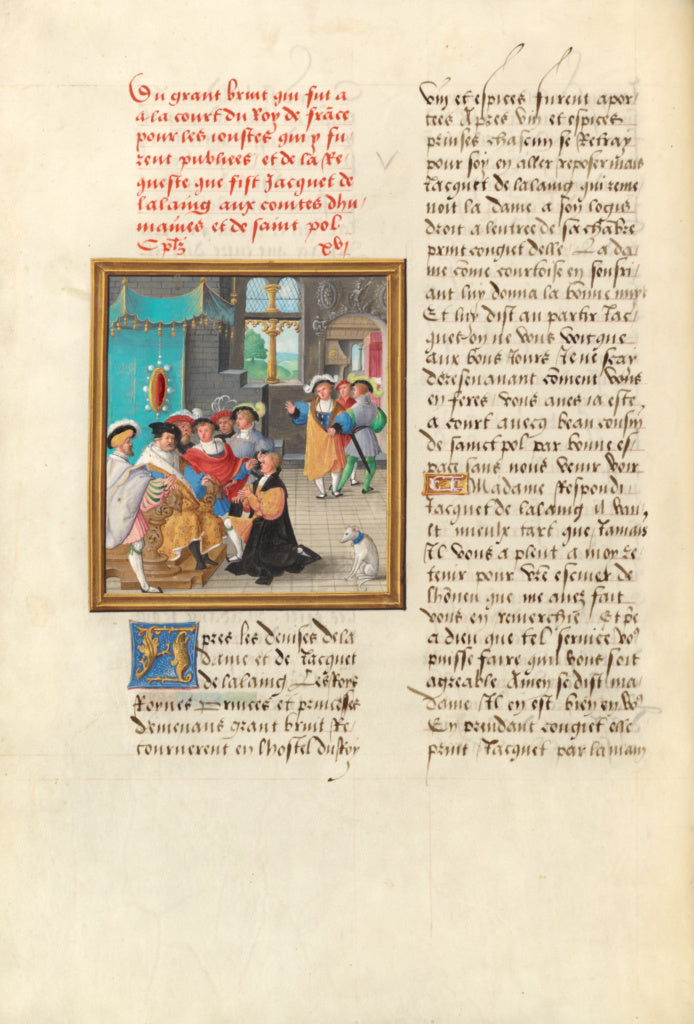 Du grant bruit qui fut a
a la court du Roy de frãce
pour les ioustes qui y fu/
rent publiees / et de la Re/
queste que fist Jacquet de
lalaing aux comtes dhu/
maines et de saint pol
xvj
Apres les deuises de la
dame et de Jacquet
de lalaing Les Roys
Roynes Princes et princesses
demenans grant bruit Re/
tournerent en lhostel du Roy
vin et espices furent apor/
tees Apres vin et espices
prinses chascun se Retray
pour soy en aller reposer mais
Jacquet de lalaing qui reme/
noit la dame a soy logis
droit a lentree de sa chãbre
print congiet delle La da/
me cõme courtoise en soubsri/
ant luy donna la bonne nuyt
Et luy dist au partir Jac/
quet on ne vous voit que
aux bons iours Je ne scay
doresenauant cõment vous
en feres / vous aues ia este
a court auecq beau cousin
de sainct pol par bonne es/
pace sans nous venir voir
Madame Respondi
Jacquet de lalaing il vau/
lt mieulx tart que Jamais
Il vous a pleut a moy re/
tenir pour vr̃e escuier de
lhõneu que me auez fait
vous en remerchie Et pẽ
a dieu que tel seruice vo9
puisse faire qui vous soit
agreable Amen se dist ma
dame Il en est bien en vo9
En prendant congiet elle
print Jacquet par la main